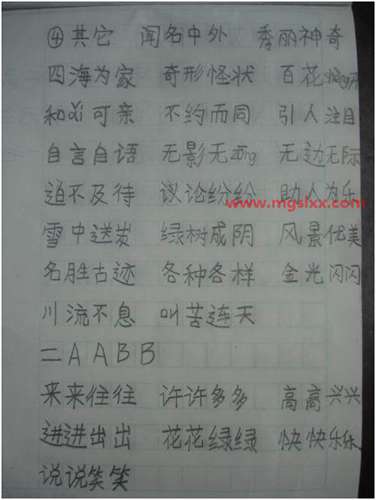 ④其它 闻名中外 秀丽神奇
四海为家 奇形怪状 百花
和ǎi可亲 不约而同 引人注目
自言自语 无影无zōng 无边无际
迫不及待 议论纷纷 助人为乐
www.mgslxx.com
雪中送炭 绿树成阴 风景优美
名胜古迹 各种各样 金光闪闪
川流不息 叫苦连天
二AABB
来来往往 许许多多 高高兴兴
进进出出 花花绿绿 快快乐乐
说说笑笑